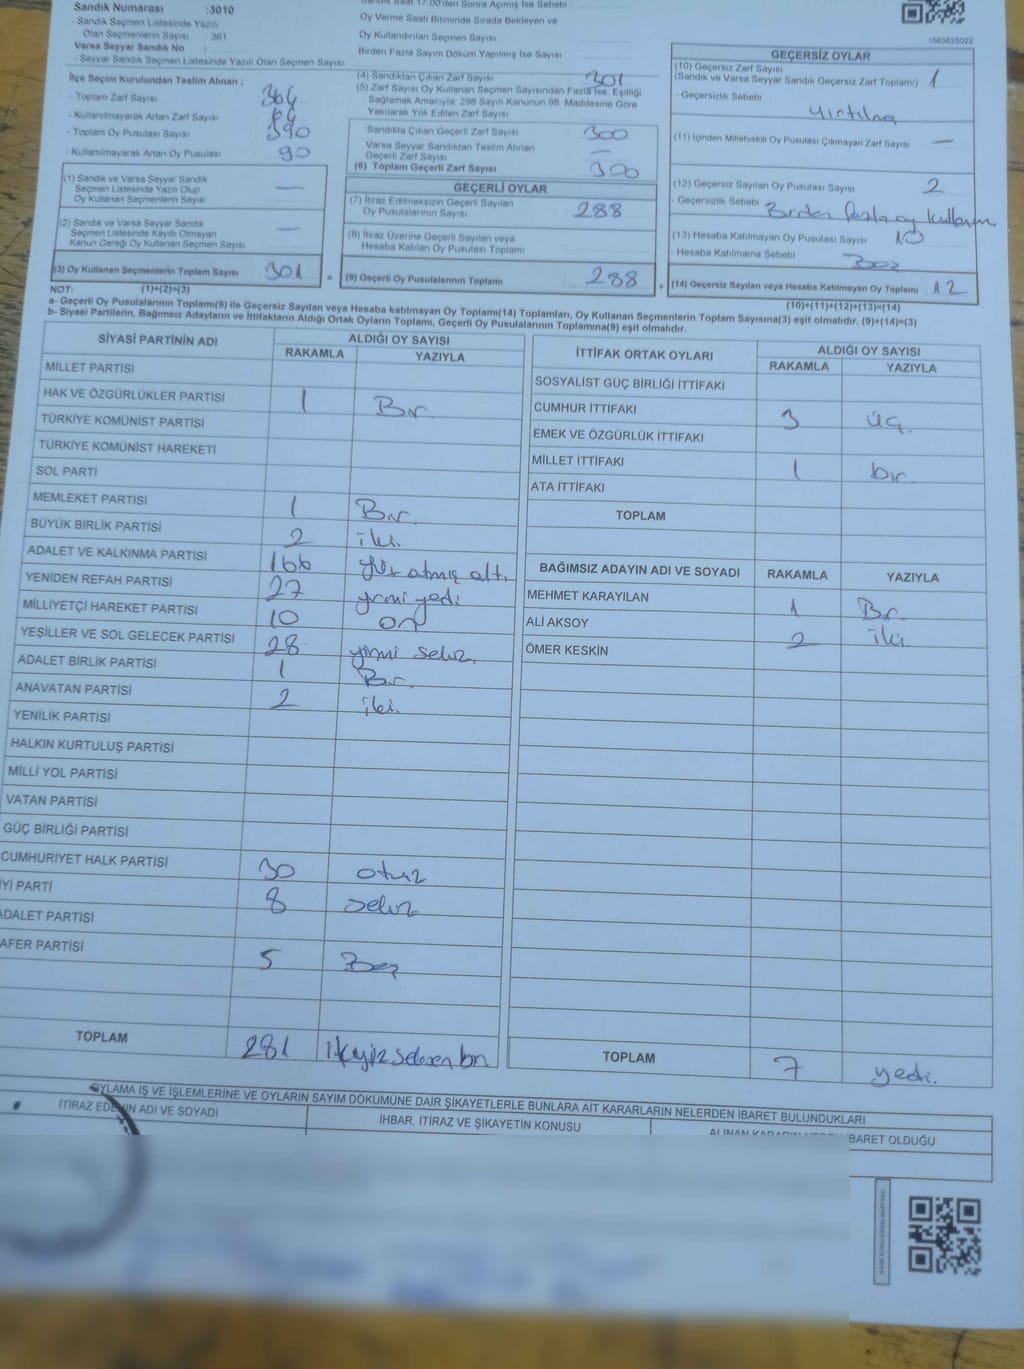 Sandık Numarası :3010
- Sandık Seçmen Listesinde Yazılı
Olan Seçmenlerin Sayısı : 361
Varsa Seyyar Sandık No :
- Seyyar Sandık Seçmen Listesinde Yazılı Olan Seçmen Sayısı
Sandık Saat 17:00'den Sonra Açılmış İse Sebebi
Oy Verme Saati Bitiminde Sırada Bekleyen ve
Oy Kullandırılan Seçmen Sayısı
Birden Fazla Sayım Döküm Yapılmış İse Sayısı
1083625022
İlçe Seçim Kurulundan Teslim Alınan ;
- Toplam Zarf Sayısı 364
- Kullanılmayarak Artan Zarf Sayısı 64
- Toplam Oy Pusulası Sayısı 390
- Kullanılmayarak Artan Oy Pusulası 90
(1) Sandık ve Varsa Seyyar Sandık
Seçmen Listesinde Yazılı Olup
Oy Kullanan Seçmenlerin Sayısı —
(2) Sandık ve Varsa Seyyar Sandık
Seçmen Listesinde Kayıtlı Olmayan
Kanun Gereği Oy Kullanan Seçmen Sayısı —
(3) Oy Kullanan Seçmenlerin Toplam Sayısı 301 =
(4) Sandıktan Çıkan Zarf Sayısı 301
(5) Zarf Sayısı Oy Kullanan Seçmen Sayısından Fazla İse, Eşitliği
Sağlamak Amacıyla; 298 Sayılı Kanunun 98. Maddesine Göre
Yakılarak Yok Edilen Zarf Sayısı
Sandıkta Çıkan Geçerli Zarf Sayısı 300
Varsa Seyyar Sandıktan Teslim Alınan
Geçerli Zarf Sayısı —
(6) Toplam Geçerli Zarf Sayısı 300
GEÇERLİ OYLAR
(7) İtiraz Edilmeksizin Geçerli Sayılan
Oy Pusulalarının Sayısı 288
(8) İtiraz Üzerine Geçerli Sayılan veya
Hesaba Katılan Oy Pusulası Toplamı
(9) Geçerli Oy Pusulalarının Toplamı 288 +
GEÇERSİZ OYLAR
(10) Geçersiz Zarf Sayısı
(Sandık ve Varsa Seyyar Sandık Geçersiz Zarf Toplamı) 1
- Geçersizlik Sebebi
yırtılma
(11) İçinden Milletvekili Oy Pusulası Çıkmayan Zarf Sayısı —
(12) Geçersiz Sayılan Oy Pusulası Sayısı 2
- Geçersizlik Sebebi Birden fazla oy kullanım
(13) Hesaba Katılmayan Oy Pusulası Sayısı
- Hesaba Katılmama Sebebi Boş
(14) Geçersiz Sayılan veya Hesaba Katılmayan Oy Toplamı : 12
NOT: (1)+(2)=(3) (10)+(11)+(12)+(13)=(14)
a- Geçerli Oy Pusulalarının Toplamı(9) ile Geçersiz Sayılan veya Hesaba katılmayan Oy Toplamı(14) Toplamları, Oy Kullanan Seçmenlerin Toplam Sayısına(3) eşit olmalıdır. (9)+(14)=(3)
b- Siyasi Partilerin, Bağımsız Adayların ve İttifakların Aldığı Ortak Oyların Toplamı, Geçerli Oy Pusulalarının Toplamına(9) eşit olmalıdır.
SİYASİ PARTİNİN ADI ALDIĞI OY SAYISI
RAKAMLA YAZIYLA
MİLLET PARTİSİ
HAK VE ÖZGÜRLÜKLER PARTİSİ 1 Bir.
TÜRKİYE KOMÜNİST PARTİSİ
TÜRKİYE KOMÜNİST HAREKETİ
SOL PARTİ
MEMLEKET PARTİSİ 1 Bir.
BÜYÜK BİRLİK PARTİSİ 2 iki.
ADALET VE KALKINMA PARTİSİ 166 yüz atmış altı.
YENİDEN REFAH PARTİSİ 27 yirmi yedi
MİLLİYETÇİ HAREKET PARTİSİ 10 on
YEŞİLLER VE SOL GELECEK PARTİSİ 28 yirmi sekiz.
ADALET BİRLİK PARTİSİ 1 Bir.
ANAVATAN PARTİSİ 2 iki.
YENİLİK PARTİSİ
HALKIN KURTULUŞ PARTİSİ
MİLLİ YOL PARTİSİ
VATAN PARTİSİ
GÜÇ BİRLİĞİ PARTİSİ
CUMHURİYET HALK PARTİSİ 30 otuz
İYİ PARTİ 8 sekiz
ADALET PARTİSİ
AFER PARTİSİ 5 Beş
TOPLAM 281 ikiyüz seksen bir
İTTİFAK ORTAK OYLARI ALDIĞI OY SAYISI
RAKAMLA YAZIYLA
SOSYALİST GÜÇ BİRLİĞİ İTTİFAKI
CUMHUR İTTİFAKI 3 üç.
EMEK VE ÖZGÜRLÜK İTTİFAKI
MİLLET İTTİFAKI 1 bir.
ATA İTTİFAKI
TOPLAM
BAĞIMSIZ ADAYIN ADI VE SOYADI RAKAMLA YAZIYLA
MEHMET KARAYILAN 1 Bir.
ALİ AKSOY 2 iki
ÖMER KESKİN
TOPLAM 7 yedi.
OYLAMA İŞ VE İŞLEMLERİNE VE OYLARIN SAYIM DÖKÜMÜNE DAİR ŞİKAYETLERLE BUNLARA AİT KARARLARIN NELERDEN İBARET BULUNDUKLARI
İTİRAZ EDENİN ADI VE SOYADI İHBAR, İTİRAZ VE ŞİKAYETİN KONUSU İBARET OLDUĞU